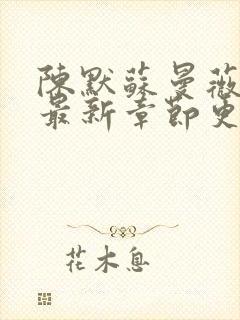 陳默蘇曼薇
最新章節更
花木息